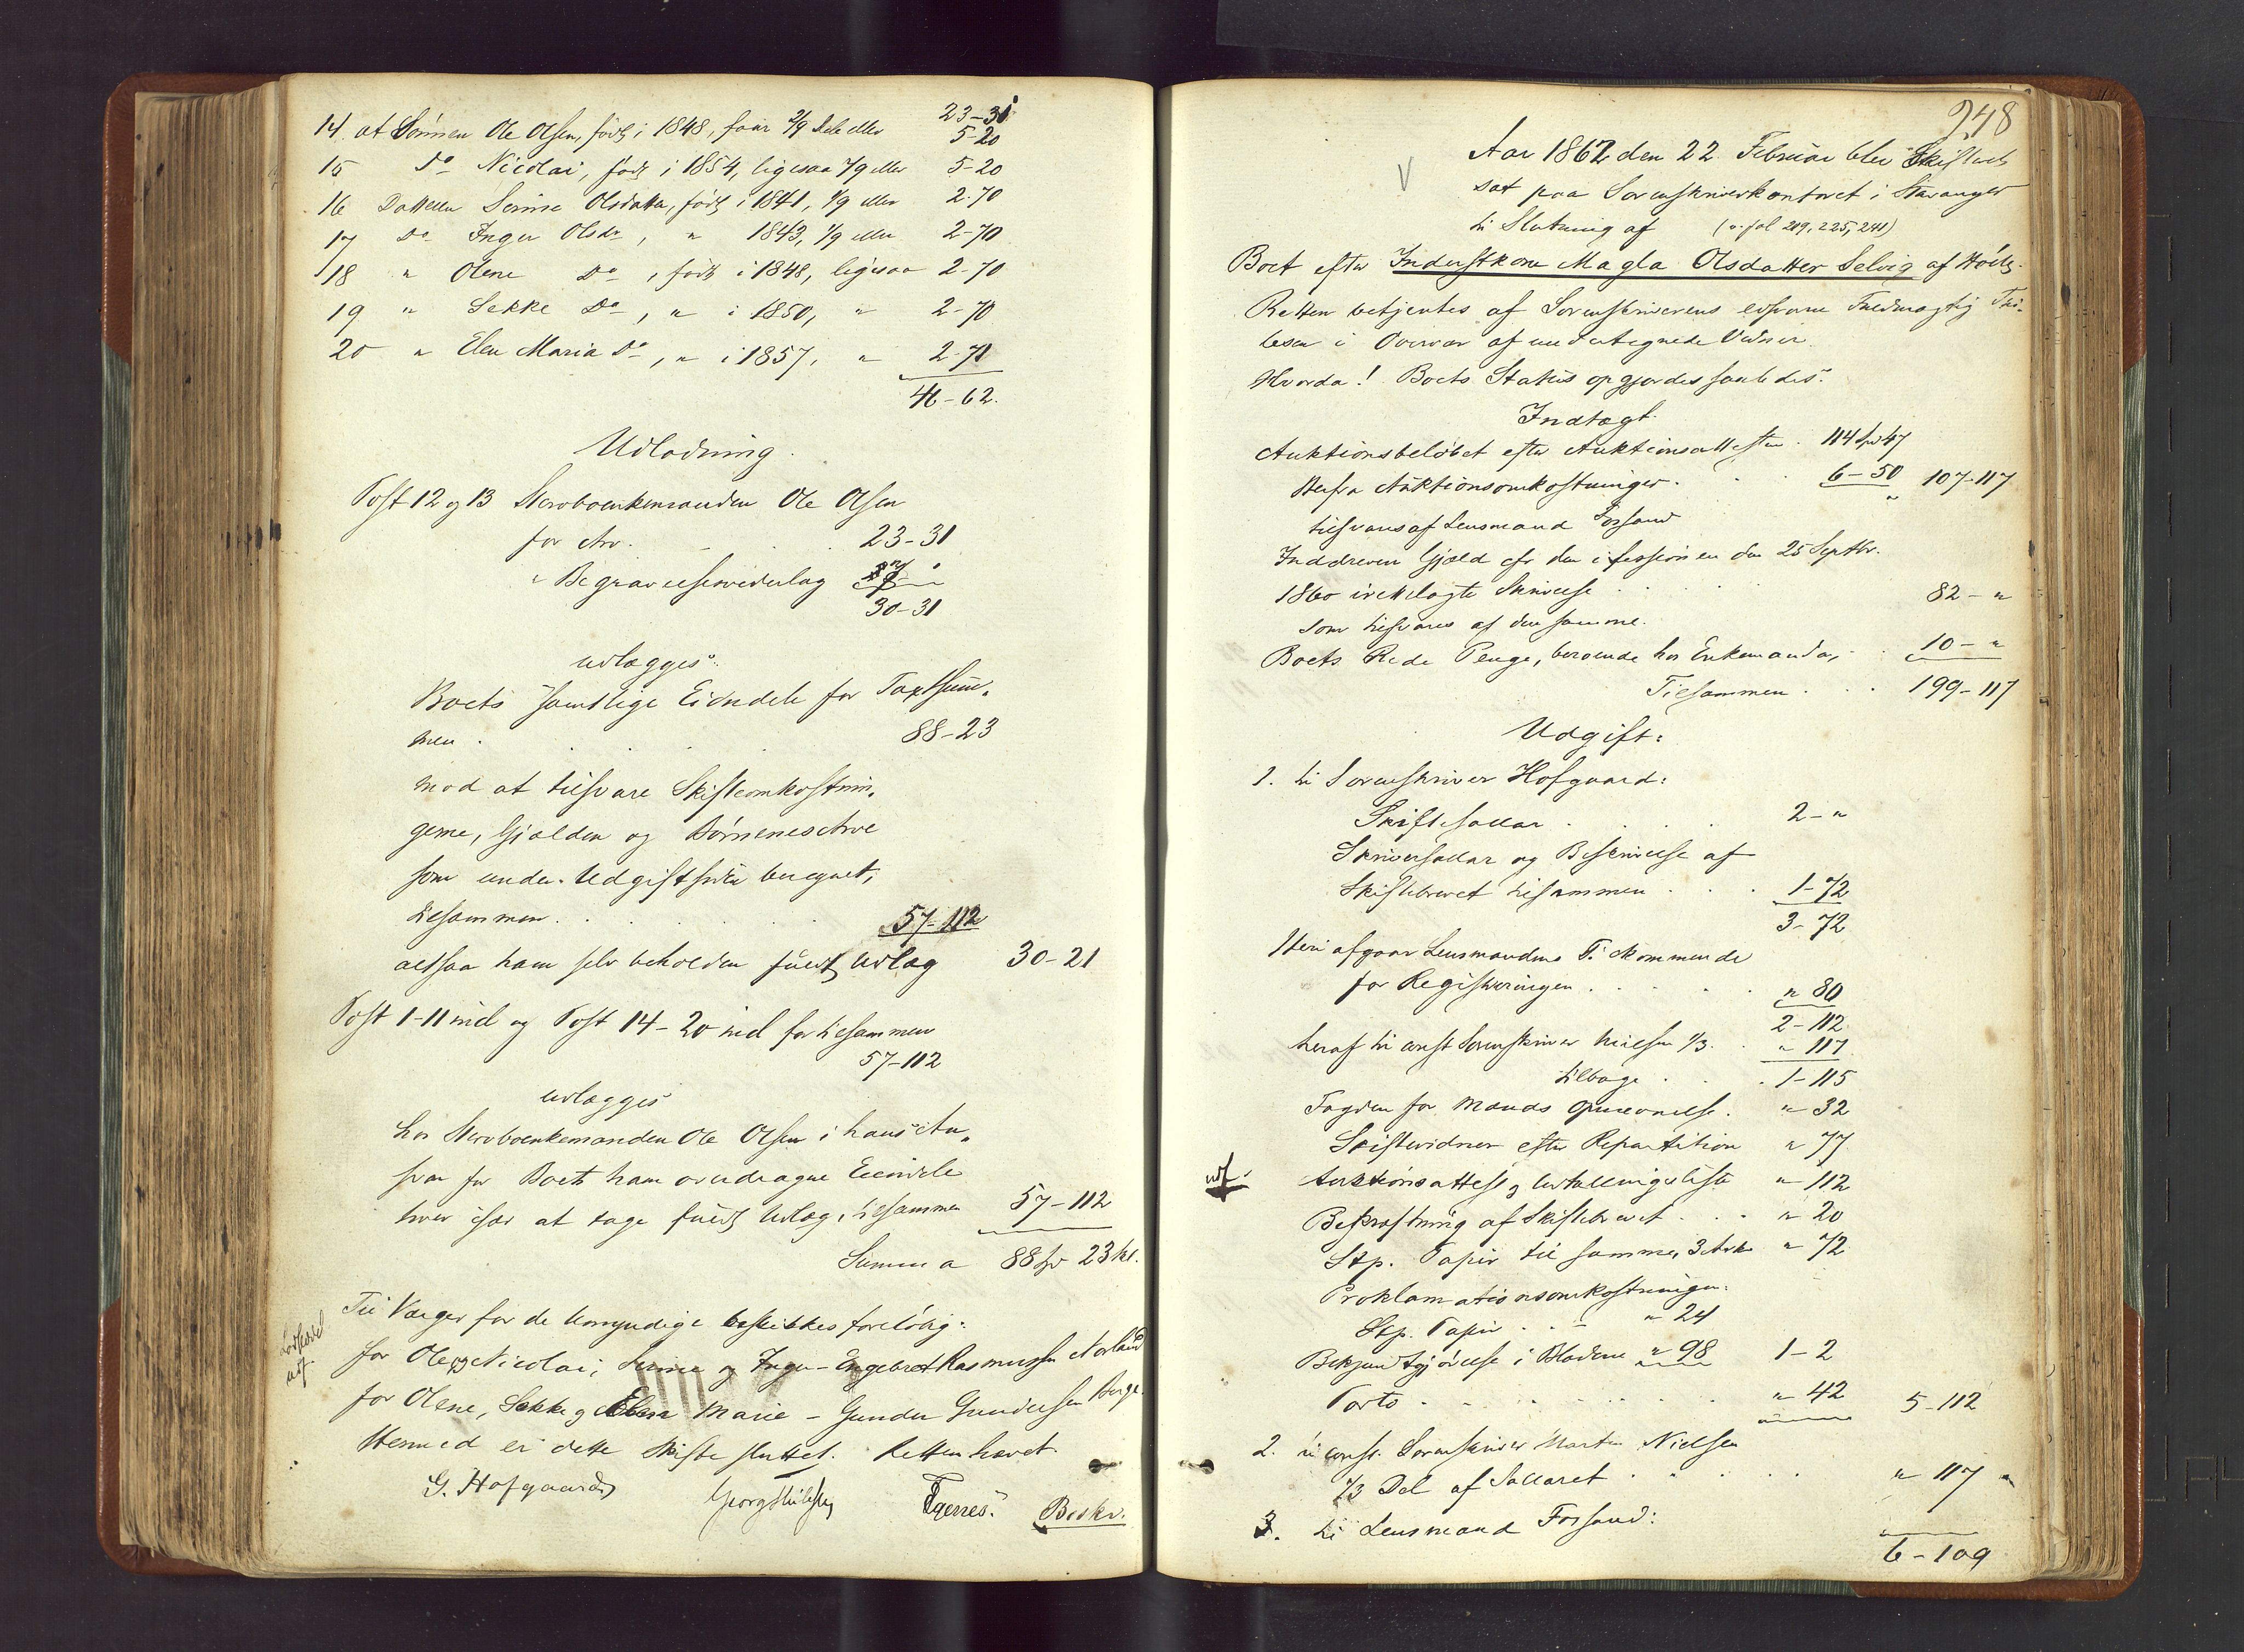 23-31
14. at Sønnen Ole Olsen, født i 1848, faar 2/9 Dele eller 5-20
15 Do Nicolai, født i 1854, ligesaa 2/9 eller 5-20
16 Datteren Serine Olsdatter, født i 1841, 1/9 eller 2-70
17 Do Inger Olsdr, " 1843, 1/9 eller 2-70
18 " Olene Do, født i 1848, ligesaa 2-70
19 " Sekke Do, " i 1850, " 2-70
20 " Elen Maria Do, " i 1857, " 2-71
46-62.
Udlodning.
Post 12 og 13 Stervboenkemanden Ole Olsen
for Arv. 23-31
" Begravelsesvederlag 7-"
30-31
udlægges:
Boets samtlige Eiendele for Taxtsum-
men 88-23
mod at tilsvare Skifteomkostnin-
gerne, Gjælden og Børnenes Arve
som under Udgiftsiden beregnet,
tilsammen 57-112
altsaa ham selv beholden fuldt Udlæg 30-21
Post 1-11 incl og Post 14-20 incl for tilsammen
57-112
udlægges
hos Stervboenkemanden Ole Olsen i hans An-
svar for Boets ham overdragne Eiendele
hver især at tage fuldt Udlæg, tilsammen 57-112
Summa 88 Spd 23 sk.
Til Værger for de Umyndige beskikkes foreløbig:
for Ole og Nicolai, Serine og Inger - Engebret Rasmussen
for Olene, Sekke og Elen Marie - Gunder Gundersen Berge.
Hermed er dette Skifte sluttet. Retten hævet.
G. Hofgaard
Beskr.
248
Aar 1862 den 22 Februar blev Skifteret
sat paa Sorenskriverkontoret i Stavanger
til Slutning af (v. fol 219, 225, 241)
Boet efter Inderstkone Magla Olsdatter Selvig af
Retten betjentes af Sorenskriverens edsvorne Fuldmægtig
i Overvær af undertegnede Vidner.
Hvorda! Boets Status opgjordes saaledes:
Indtægt.
Auktionsbeløbet efter Auktionsattesten 114 Spd 47
Herfra Auktionsomkostninger 6-50 107-117
tilsvares af Lensmand Forsand
Inddreven Gjæld efter den i Sessionen den 25 Septbr.
1860 irettelagte Skrivelse 82-"
som tilsvares af den samme.
Boets Rede Penge, beroende hos Enkemanden, 10-"
Tilsammen 199-117
Udgift:
1. til Sorenskriver Hofgaard:
Skiftesallar 2-"
Skriversallar og Beskrivelse af
Skiftebrevet tilsammen 1-72
3-72
Heri afgaar Lensmandens Tilkommende
for Registreringen " 80
2-112
heraf til const Sorenskriver Nielsen 1/3 " 117
tilbage 1-115
Fogden for Mands Opnævnelse " 32
Skiftevidner efter Repartition " 77
udf. Auktionsattest og Udtællingsliste " 112
Bekræftning af Skiftebrevet " 20
Stp. Papir til samme, 3 Ark " 72
Proklamationsomkostninger:
Stp. Papir " 24
Bekjendtgjørelse i Bladene " 98 1-2
Porto " 42 5-112
2. til const. Sorenskriver Morten Nielsen
1/3 Del af Sallaret " 117
3. til Lensmand Forsand:
6-109